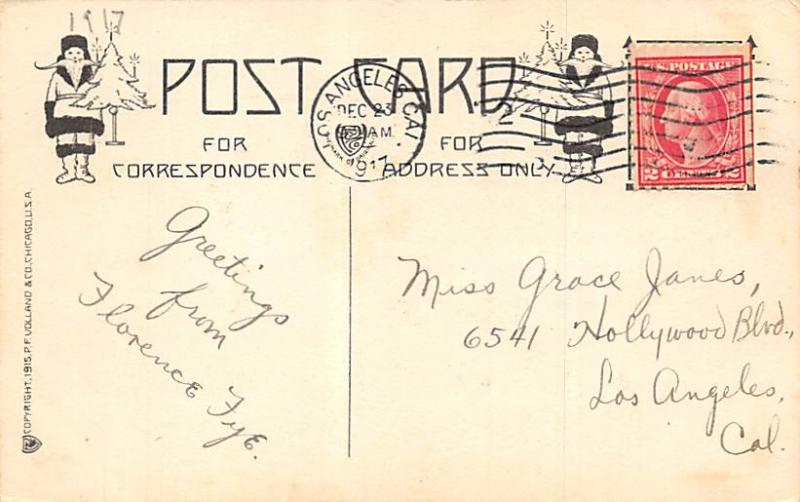 1917
POST CARD
FOR CORRESPONDENCE
FOR ADDRESS ONLY
LOS ANGELES, CAL.
DEC 23
AM
1917
U.S. POSTAGE
2 CENTS 2
Greetings
from
Florence Fye.
Miss Grace Janes,
6541 Hollywood Blvd.,
Los Angeles,
Cal.
COPYRIGHT, 1915, P.F. VOLLAND & CO. CHICAGO, U.S.A.